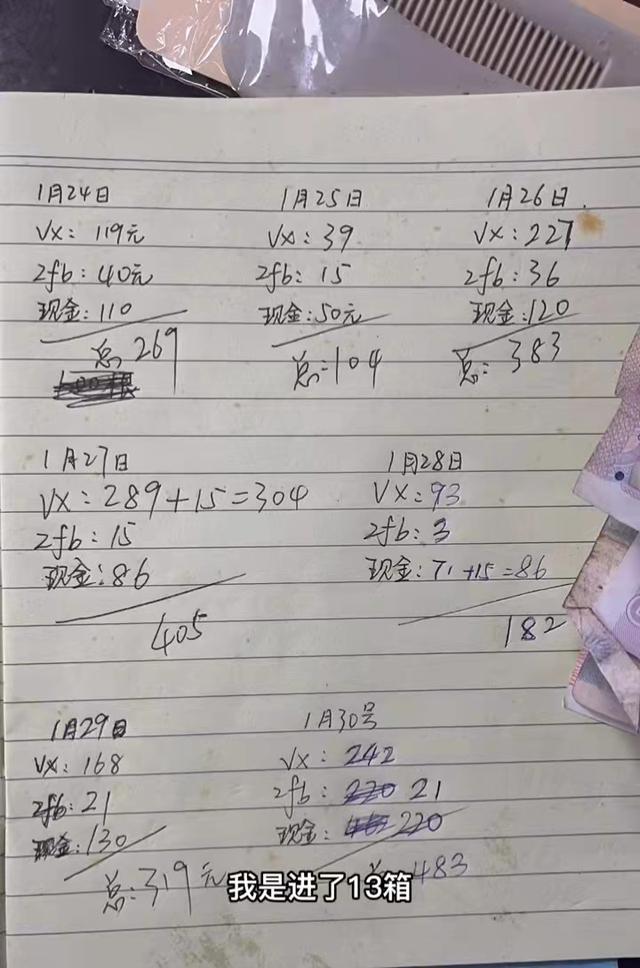 1月24日
VX：119元
Zfb：40元
现金：110
总 269
1月25日
VX：39
Zfb：15
现金：50元
总：104
1月26日.
VX：227
Zfb：36
现金：120
总：383
1月27日
VX：289+15=304
Zfb：15
现金：86
405
1月28日
VX：93
Zfb：3
现金：71+15=86
182
1月29日
VX：168
Zfb：21
现金：130
总：319元
1月30号
VX：242
Zfb：220 21
现金：220
483
我是进了13箱